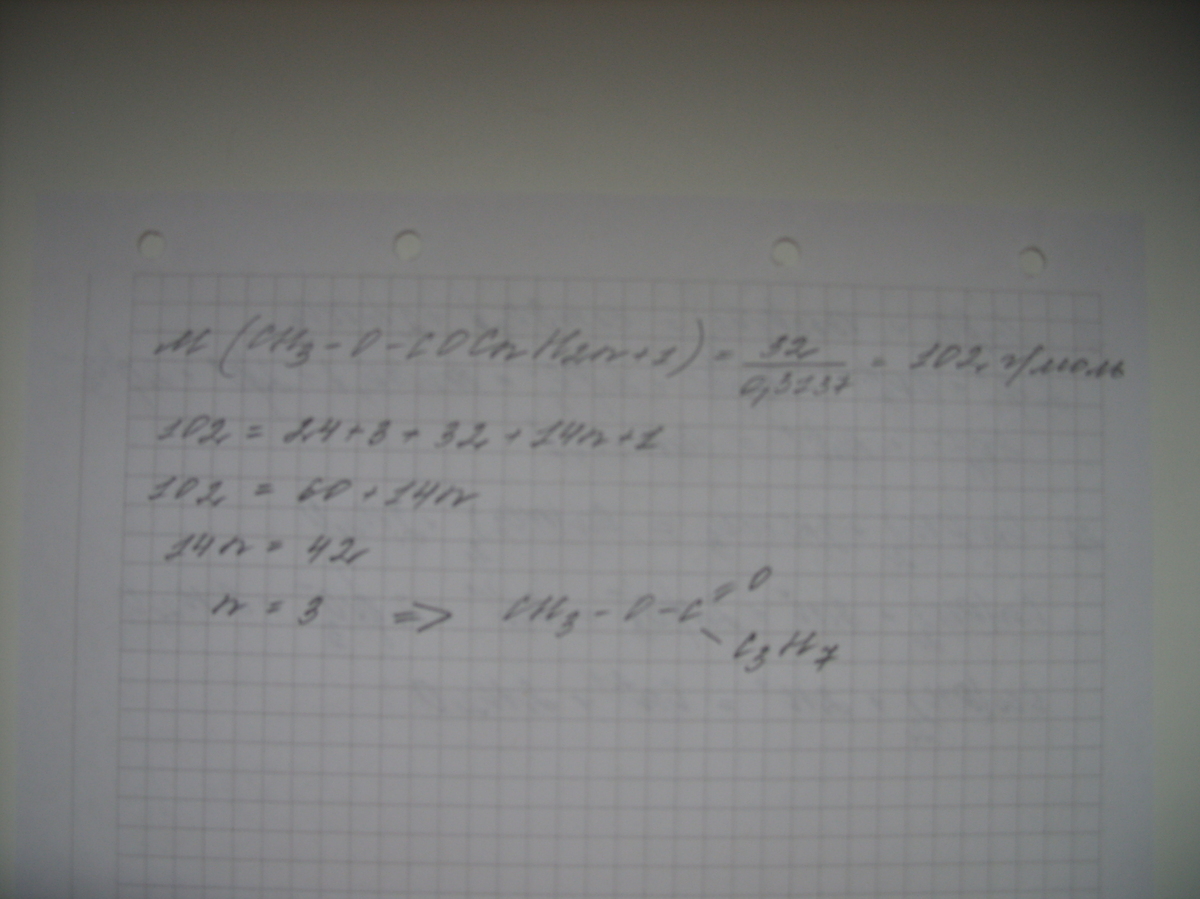 M (CH3 - O - COCnH2n+1) = 32/0,3137 = 102 г/моль
102 = 24 + 3 + 32 + 14n + 1
102 = 60 + 14n
14n = 42
n = 3 => CH3 - O - C = O
\ C3H7